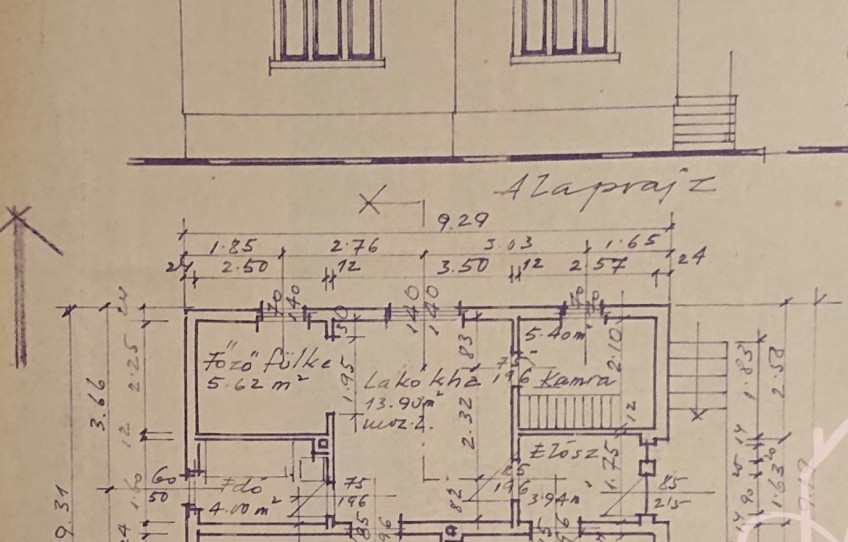 Alaprajz
9.29
1.85 2.76 3.03 1.65
24 2.50 12 3.50 12 2.57 24
70 140 140 140 70 70
24
50
5.40m²
83
75
196
2.10
Főző fülke
5.62 m²
1.95
Lakó kha
13.90m²
moz.l.
Kamra
2.25
3.66
12
2.32
12
1.83
2.58
Elősz
60
50
Fdő
4.00 m²
75
196
85
196
3.94m²
1.75
85
215
1.50
9.31
82
24
14
90
1.63
85
96